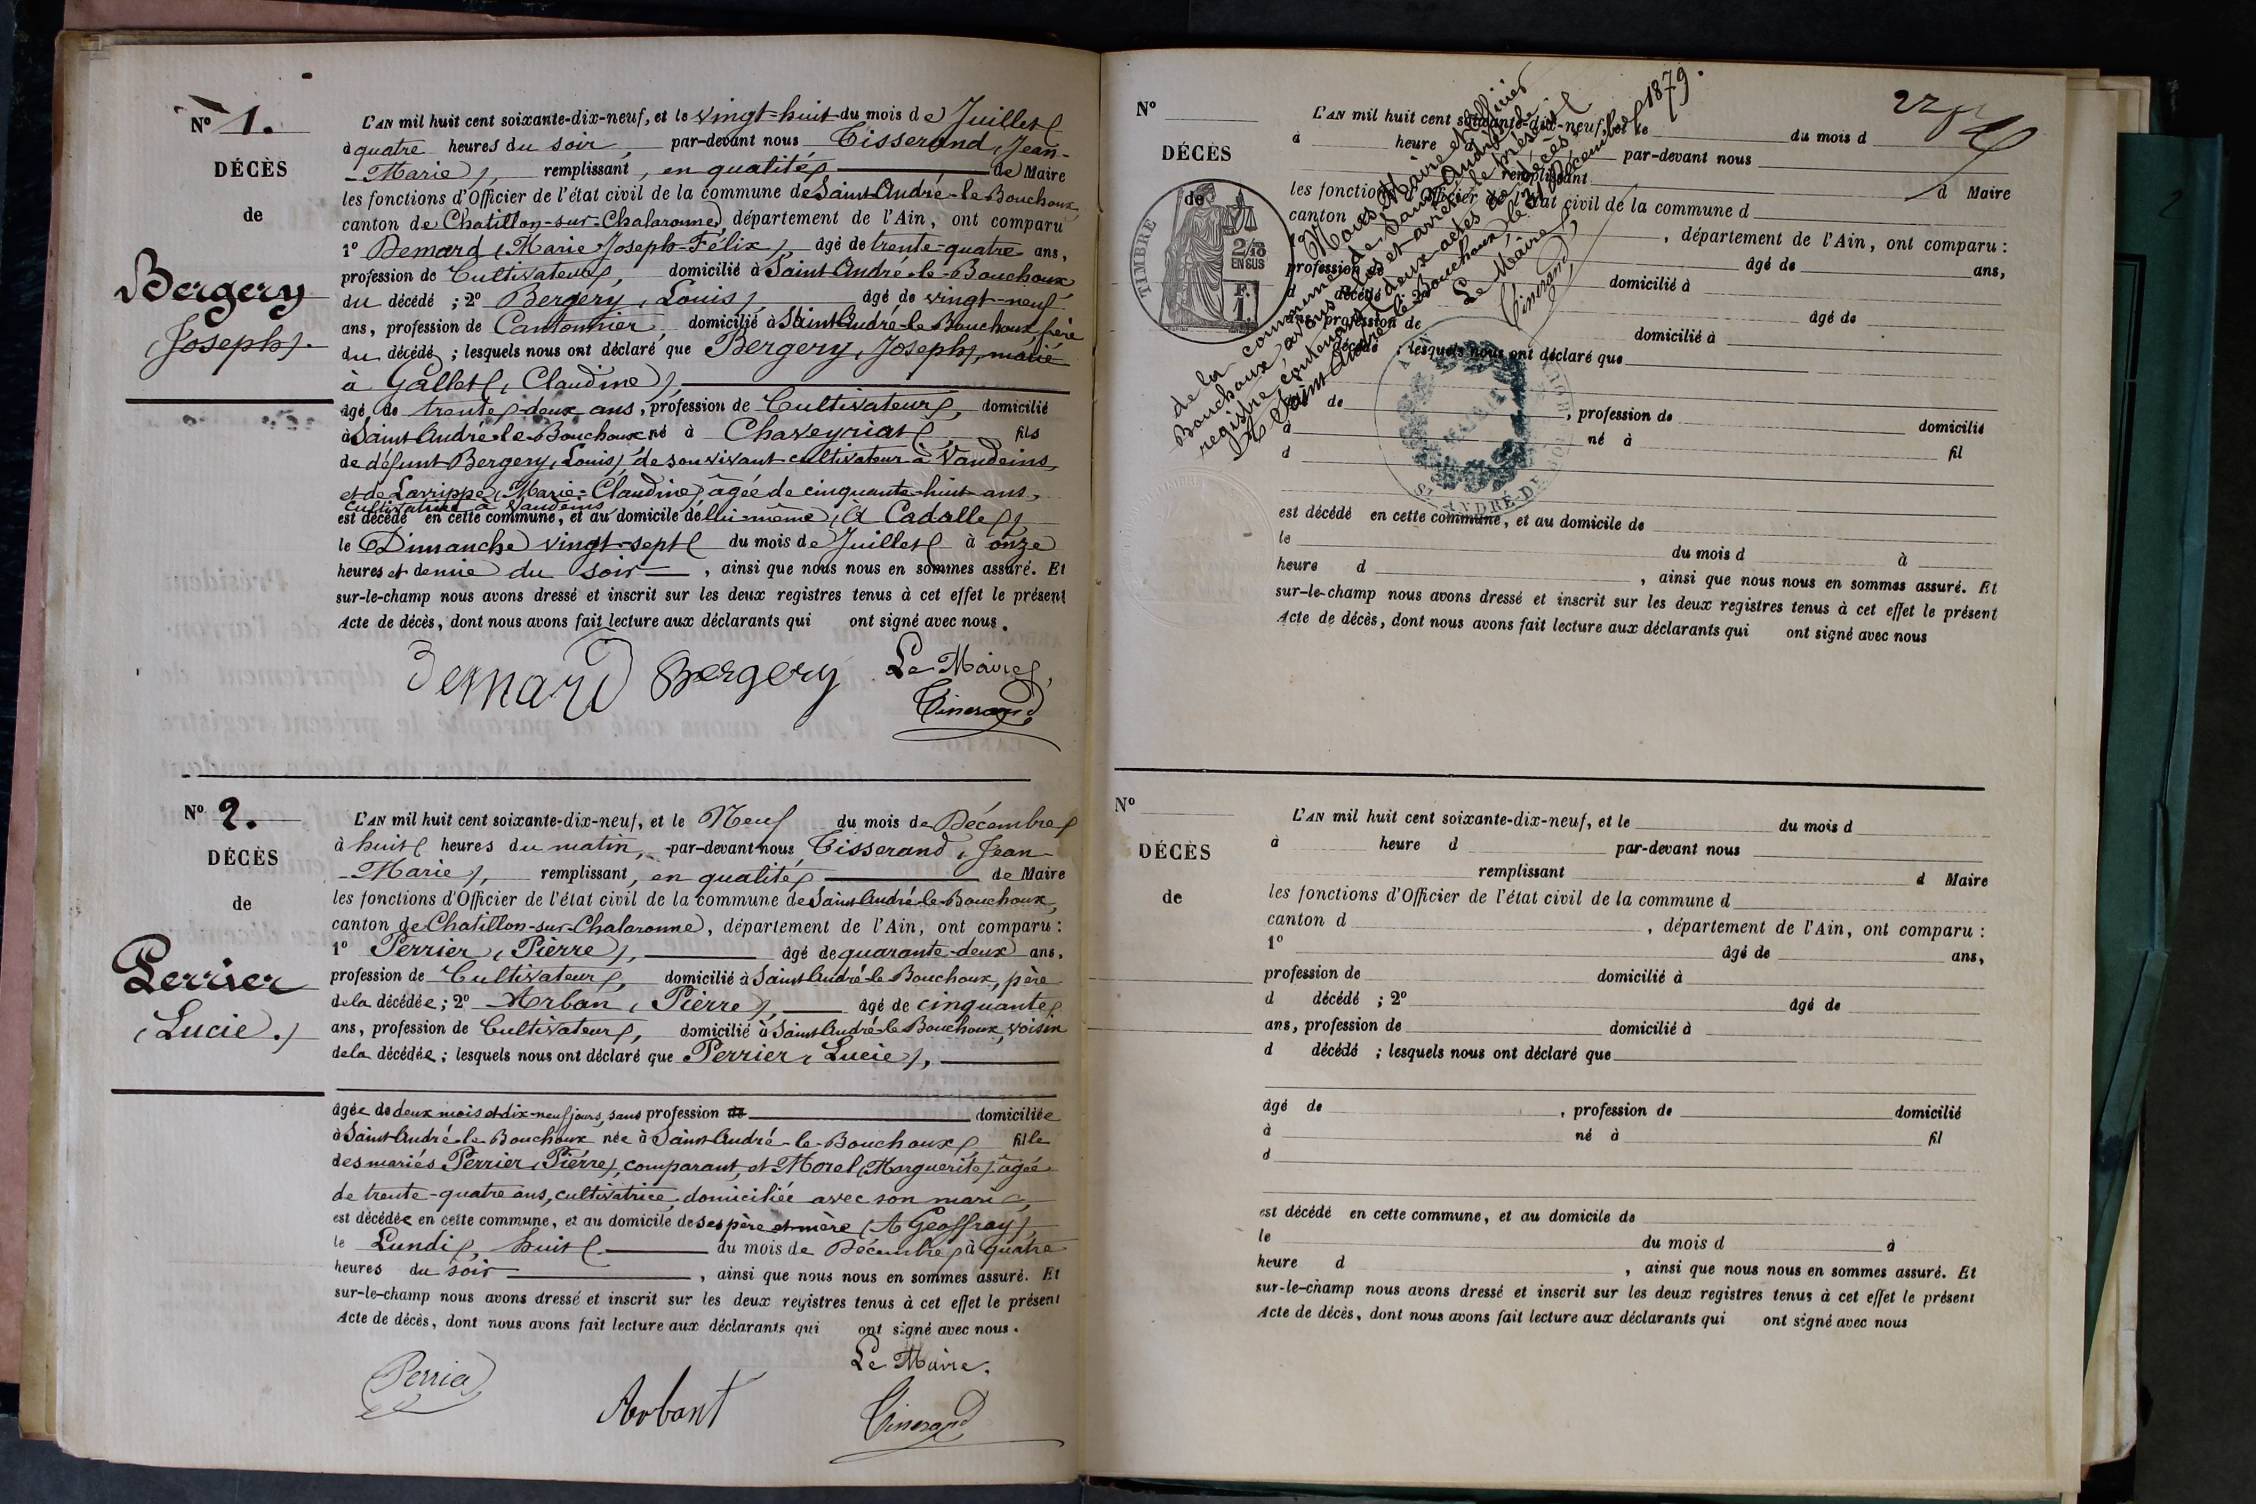 N° 1.
DÉCÈS
de
Bergery
(Joseph).
L'AN mil huit cent soixante-dix-neuf, et le vingt-huit du mois de Juillet
à quatre heures du soir, par-devant nous Tisserand, Jean-
-Marie), remplissant, en qualité de Maire
les fonctions d'Officier de l'état civil de la commune de Saint-André-le-Bouchoux,
canton de Chatillon-sur-Chalaronne, département de l'Ain, ont comparu
1° Demard (Marie Joseph-Félix), âgé de trente-quatre ans,
profession de Cultivateur, domicilié à Saint-André-le-Bouchoux
du décédé ; 2° Bergery, Louis) âgé de vingt-neuf
ans, profession de Cantonnier, domicilié à Saint-André-le-Bouchoux, frère
du décédé ; lesquels nous ont déclaré que Bergery, Joseph), marié
à Gallet, Claudine),
âgé de trente-deux ans, profession de Cultivateur, domicilié
à Saint-André-le-Bouchoux né à Chaveyriat fils
de défunt Bergery, Louis) de son vivant cultivateur à Vandeins,
et de Larrippe, Marie-Claudine) âgée de cinquante-huit ans,
cultivatrice à Vandeins
est décédé en cette commune, et au domicile de lui-même, (A Cadalle),
le Dimanche vingt-sept du mois de Juillet à onze
heures et demie du soir, ainsi que nous nous en sommes assuré. Et
sur-le-champ nous avons dressé et inscrit sur les deux registres tenus à cet effet le présent
Acte de décès, dont nous avons fait lecture aux déclarants qui ont signé avec nous.
Demard Bergery Le Maire,
Tisserand
N° 2.
DÉCÈS
de
Perrier
(Lucie.)
L'AN mil huit cent soixante-dix-neuf, et le Neuf du mois de Décembre
à huit heures du matin, par-devant nous Tisserand, Jean-
-Marie), remplissant, en qualité de Maire
les fonctions d'Officier de l'état civil de la commune de Saint-André-le-Bouchoux,
canton de Chatillon-sur-Chalaronne, département de l'Ain, ont comparu :
1° Perrier, (Pierre), âgé de quarante-deux ans,
profession de Cultivateur, domicilié à Saint-André-le-Bouchoux, père
de la décédée ; 2° Arban, (Pierre), âgé de cinquante
ans, profession de Cultivateur, domicilié à Saint-André-le-Bouchoux, voisin
de la décédée ; lesquels nous ont déclaré que Perrier, Lucie),
âgée de deux mois et dix-neuf jours, sans profession de domiciliée
à Saint-André-le-Bouchoux née à Saint-André-le-Bouchoux, fille
des mariés Perrier (Pierre), comparant, et Morel (Marguerite) âgée
de trente-quatre ans, cultivatrice domiciliée avec son mari
est décédée en cette commune, et au domicile de ses père et mère (A Geoffray)
le Lundi, huit du mois de Décembre, à quatre
heures du soir, ainsi que nous nous en sommes assuré. Et
sur-le-champ nous avons dressé et inscrit sur les deux registres tenus à cet effet le présent
Acte de décès, dont nous avons fait lecture aux déclarants qui ont signé avec nous.
Le Maire.
Perria Arbant Tisserand
N°
DÉCÈS
de
TIMBRE
2/10
EN SUS
F.
1.
22
L'AN mil huit cent soixante-dix-neuf, et le du mois d
à heure par-devant nous
remplissant d Maire
les fonctions d'Officier de l'état civil de la commune d
canton , département de l'Ain, ont comparu :
âgé de ans,
profession de domicilié à
d décédé ; 2° âgé de
ans, profession de domicilié à
décédé ; lesquels nous ont déclaré que
de , profession de domicilié
à né à fil
d
est décédé en cette commune, et au domicile de
le du mois d à
heure d , ainsi que nous nous en sommes assuré. Et
sur-le-champ nous avons dressé et inscrit sur les deux registres tenus à cet effet le présent
Acte de décès, dont nous avons fait lecture aux déclarants qui ont signé avec nous
Nous, Maire et officier
de la commune de Saint-André-le-
Bouchoux, avons clos et arrêté le présent
registre contenant deux actes de décès.
A Saint-André-le-Bouchoux, le 31 Décembre 1879.
Le Maire,
Tisserand
MAIRIE
ST ANDRÉ-
N°
DÉCÈS
de
L'AN mil huit cent soixante-dix-neuf, et le du mois d
à heure d par-devant nous
remplissant d Maire
les fonctions d'Officier de l'état civil de la commune d
canton d , département de l'Ain, ont comparu :
1° âgé de ans,
profession de domicilié à
d décédé ; 2° âgé de
ans, profession de domicilié à
d décédé ; lesquels nous ont déclaré que
âgé de , profession de domicilié
à né à fil
d
est décédé en cette commune, et au domicile de
le du mois d à
heure d , ainsi que nous nous en sommes assuré. Et
sur-le-champ nous avons dressé et inscrit sur les deux registres tenus à cet effet le présent
Acte de décès, dont nous avons fait lecture aux déclarants qui ont signé avec nous